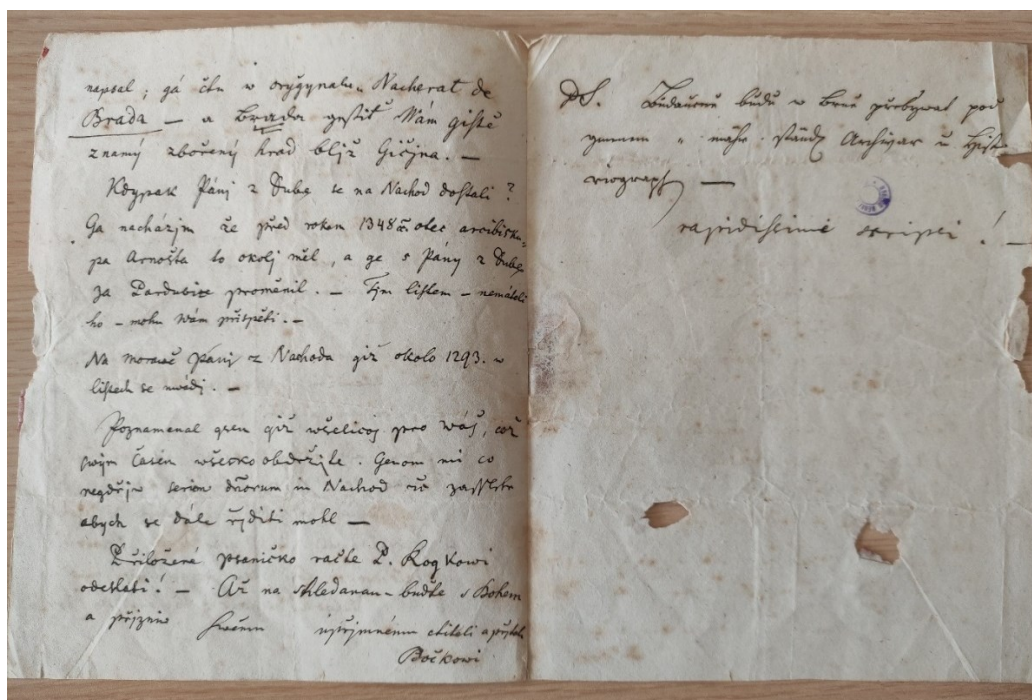 napsal ; gá čtu w orygynalu „Nacherat de
Brada — a Brada gestiť Wám giště
známý zbořený hrad blíž Gičjna. —
Kdypak Pánj z Dubé se na Nachod dostali ?
Ga nacházjm že před rokem 1348 otec arcibisku-
pa Arnošta to okolj měl, a ge s Pány z Dubé
za Pardubice proměnil. — Tjm listem – nemáteli
ho – mohu Wám přispěti. —
Na morawě Pánj z Nachoda giž okolo 1293. w
listech se uwádj. —
Poznamenal gsem giž wšelicos pro Wás, což
swým časem wšecko obdržjte. Genom mi co
neydřjw seriem dnorum in Nachod zašlete
abych se dále řjditi mohl —
Přiložené psaničko račte P. Rogkowi
odeslati ! — Až na shledanau – buďte s Bohem
a přjzniw swému upřjmnému ctiteli a přjteli
Bočkowi
PS. Budaucně budu w Brně přebywat pod
gmenem „ mähr. ständ. Archivar u Hist
riograph —
rapidissime scripsi ! —